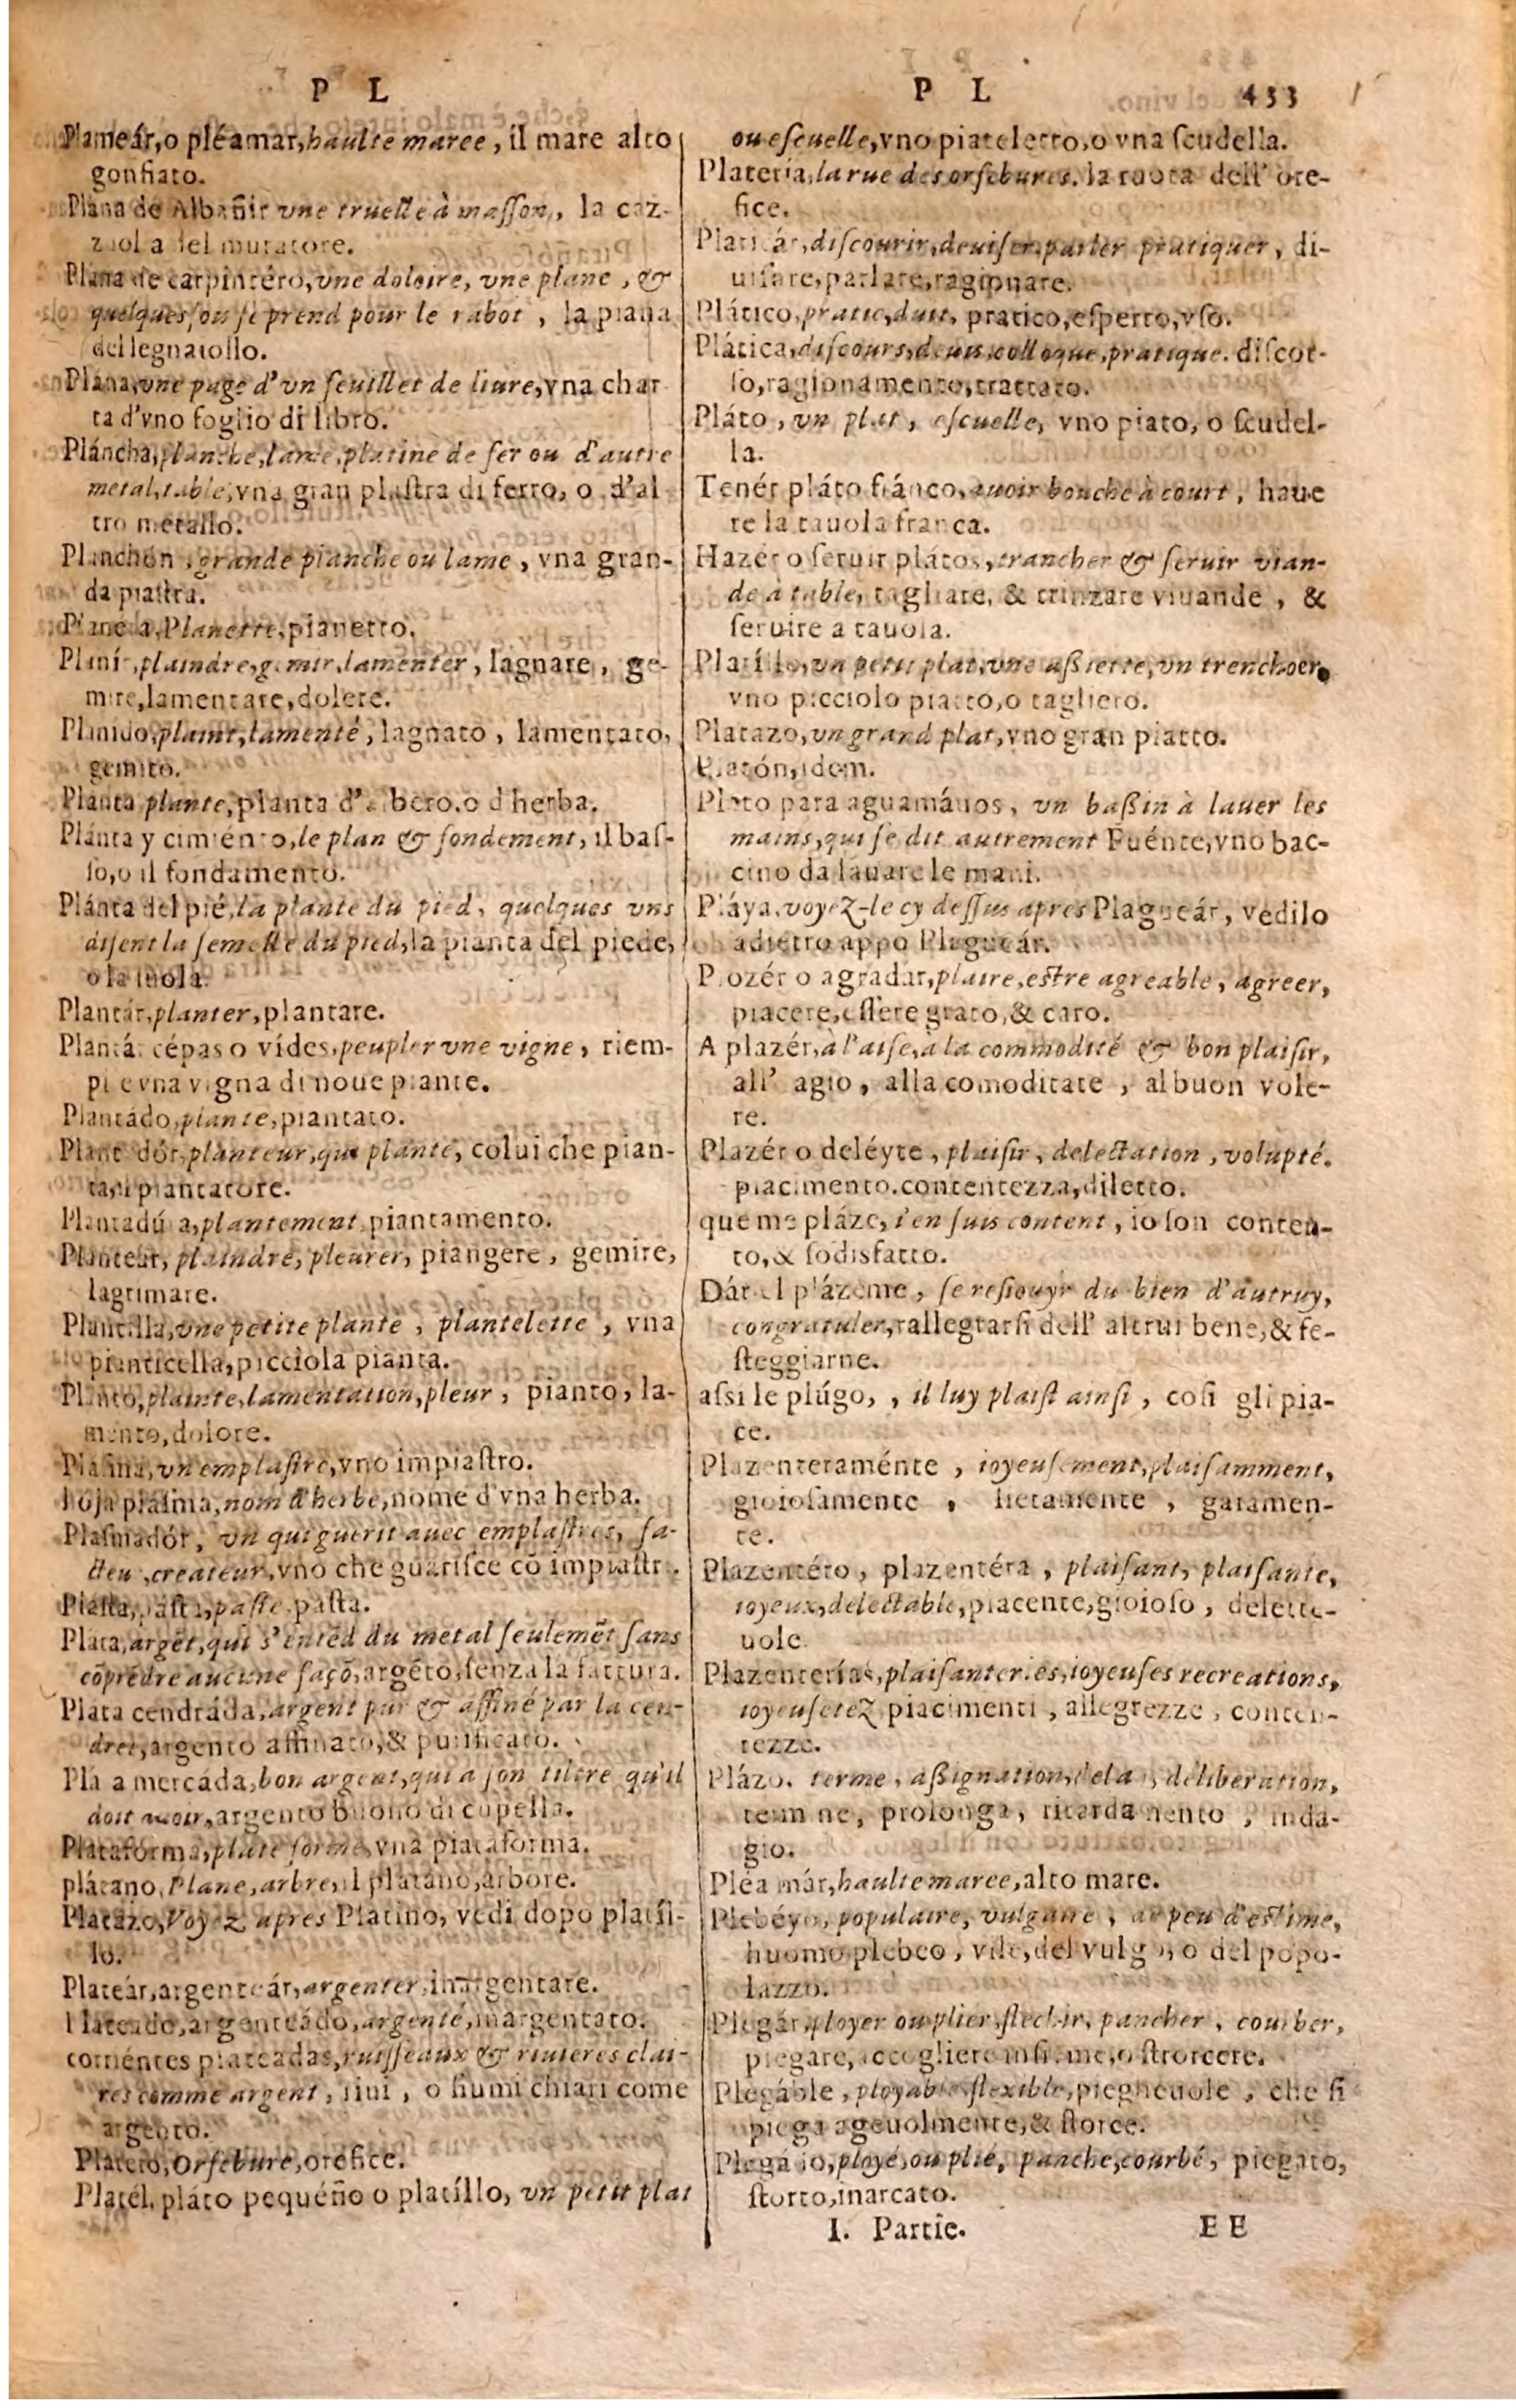 P L
Plameár, o pléamar, haulte maree, il mare alto
gonfiato.
Plana de Albañir vne truelle à masson, la caz-
zuola del muratore.
Plana de carpintéro, vne doloire, vne plane, &
quelques fou se prend pour le rabot, la piana
del legnaiollo.
Plána, vne page d'vn feuillet de liure, vna char
ta d'vno foglio di libro.
Pláncha, planche, lame, platine de fer ou d'autre
metal, table, vna gran piastra di ferro, o d'al
tro metallo.
Planchón, grande planche ou lame, vna gran-
da piastra.
Planeta, Planette, pianetto.
Planír, plaindre, gemir, lamenter, lagnare, ge-
mire, lamentare, dolere.
Planido, plaint, lamenté, lagnato, lamentato,
gemito.
Planta, plante, planta d'albero, o d'herba.
Plánta y cimiénto, le plan & fondement, il bas-
so, o il fondamento.
Plánta del pié, la plante du pied, quelques vns
disent la semelle du pied, la pianta del piede,
o la suola.
Plantár, planter, plantare.
Plantár cépas o vídes, peupler vne vigne, riem-
pire vna vigna di noue piante.
Plantádo, plante, piantato.
Plantadór, planteur, qui plante, colui che pian-
ta, il piantatore.
Plantadúra, plantement, piantamento.
Plantear, plaindre, pleurer, piangere, gemire,
lagrimare.
Plantilla, vne petite plante, plantelette, vna
pianticella, picciola pianta.
Planto, plainte, lamentation, pleur, pianto, la-
mento, dolore.
Plasma, vn emplastre, vno impiastro.
hoja plasma, nom d'herbe, nome d'vna herba.
Plasmadór, vn qui guerit auec emplastres, fa-
cteur, createur, vno che guarisce cō impiastri.
Plasta, pasta, paste, pasta.
Plata, argēt, qui s'entēd du metal seulemēt sans
cōprēdre aucune façō, argēto, senza la fattura.
Plata cendráda, argent pur & affiné par la cen-
dree, argento affinato, & purificato.
Plata mercáda, bon argent, qui a son tiltre qu'il
doit auoir, argento buono di copella.
Plataforma, plate forme, vna piataforma.
plátano, Plane, arbre, il platano, arbore.
Platazo, Voyez apres Platino, vedi dopo platil-
lo.
Plateár, argenteár, argenter, inargentare.
Plateado, argenteádo, argenté, inargentato.
corriéntes plateadas, ruisseaux & riuieres clai-
res comme argent, riui, o fiumi chiari come
argento.
Platero, Orfebure, orefice.
Platél, pláto pequéño o platíllo, vn petit plat
P L 433
ou escuelle, vno piateletto, o vna scudella.
Plateria, la rue des orfebures. la ruota dell' ore-
fice.
Platicár, discourir, deuiser, parler pratiquer, di-
uisare, parlare, ragionare.
Plático, pratic, duit, pratico, esperto, vso.
Plática, discours, deuis, colloque, pratique. discor-
so, ragionamento, trattato.
Pláto, vn plat, escuelle, vno piato, o scudel-
la.
Tenér pláto fránco, auoir bouche à court, haue
re la tauola franca.
Hazér o seruir plátos, trancher & seruir vian-
de à table, tagliare, & trinzare viuande, &
seruire a tauola.
Platíllo, vn petit plat, vne aßiette, vn trenchoer,
vno picciolo piatto, o tagliero.
Platazo, vn grand plat, vno gran piatto.
Platón, idem.
Plato para aguamános, vn baßin à lauer les
mains, qui se dit autrement Fuénte, vno bac-
cino da lauare le mani.
Pláya, voyez-le cy dessus apres Plagueár, vedilo
adietro appo Plagueár.
Plozér o agradar, plaire, estre agreable, agreer,
piacere, essere grato, & caro.
A plazér, à l'aise, à la commodité & bon plaisir,
all' agio, alla comoditate, al buon vole-
re.
Plazér o deléyte, plaisir, delectation, volupté.
piacimento. contentezza, diletto.
que me pláze, i'en suis content, io son conten-
to, & sodisfatto.
Dár el plázeme, se resiouyr du bien d'autruy,
congratuler, rallegrarsi dell' altrui bene, & fe-
steggiarne.
assi le plúgo, , il luy plaist ainsi, cosi gli pia-
ce.
Plazenteraménte, ioyeusement, plaisamment,
gioiosamente, lietamente, gaiamen-
te.
Plazentéro, plazentéra, plaisant, plaisante,
ioyeux, delectable, piacente, gioioso, delette-
uole.
Plazenterías, plaisanteries, ioyeuses recreations,
ioyeusetez piacimenti, allegrezze, conten-
tezze.
Plázo. terme, aßignation, delay, deliberation,
termine, prolonga, ritardamento, inda-
gio.
Pléa már, haulte maree, alto mare.
Plebéyo, populaire, vulgaire, de peu d'estime,
huomo plebeo, vile, del vulgo, o del popo-
lazzo.
Plegár, ployer ou plier, flechir, pancher, courber,
piegare, accogliere insieme, o strorcere.
Plegáble, ployable, flexible, pieghéuole, che si
piega ageuolmente, & storce.
Plegádo, ployé, ou plié, panche, courbé, piegato,
storto, inarcato.
I. Partie. EE